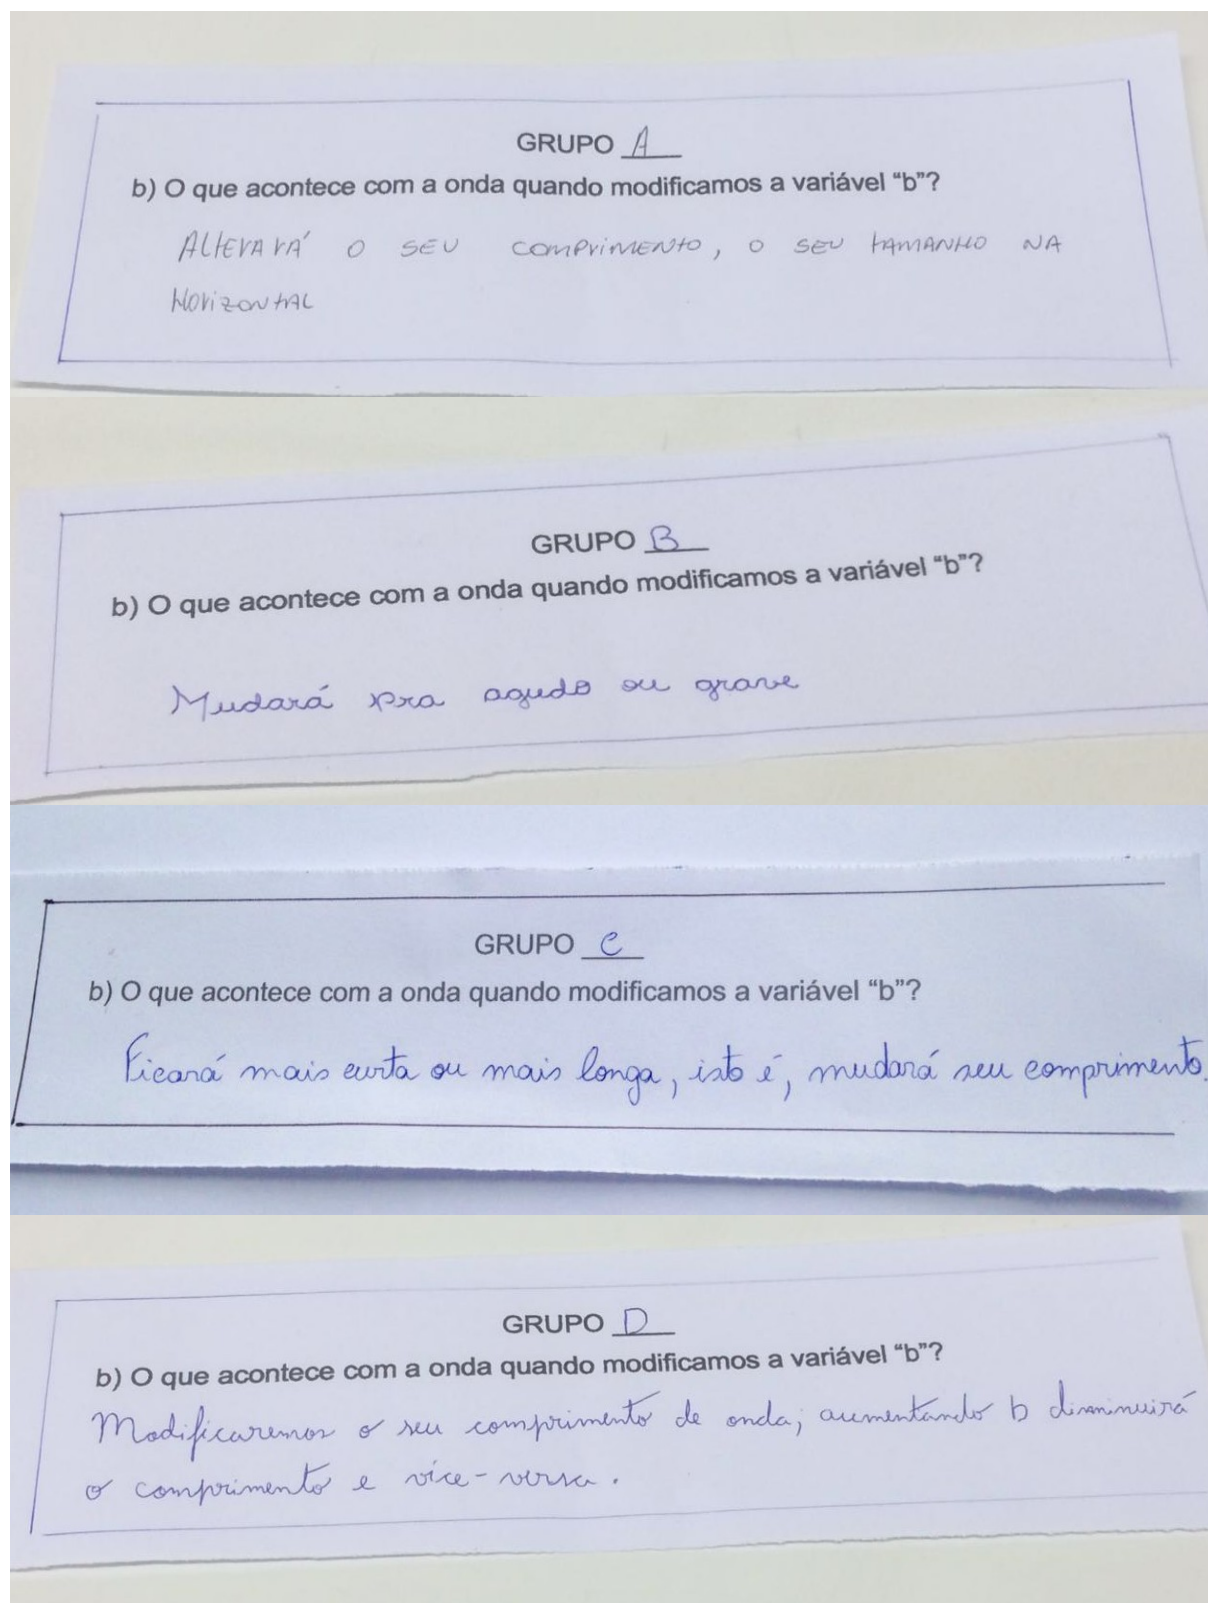 GRUPO A
b) O que acontece com a onda quando modificamos a variável “b”?
ALTERARÁ O SEU COMPRIMENTO, O SEU TAMANHO NA
HORIZONTAL
GRUPO B
b) O que acontece com a onda quando modificamos a variável “b”?
Mudará pra agudo ou grave
GRUPO C
b) O que acontece com a onda quando modificamos a variável “b”?
Ficará mais curta ou mais longa, isto é, mudará seu comprimento.
GRUPO D
b) O que acontece com a onda quando modificamos a variável “b”?
Modificaremos o seu comprimento de onda; aumentando b diminuirá
o comprimento e vice-versa.